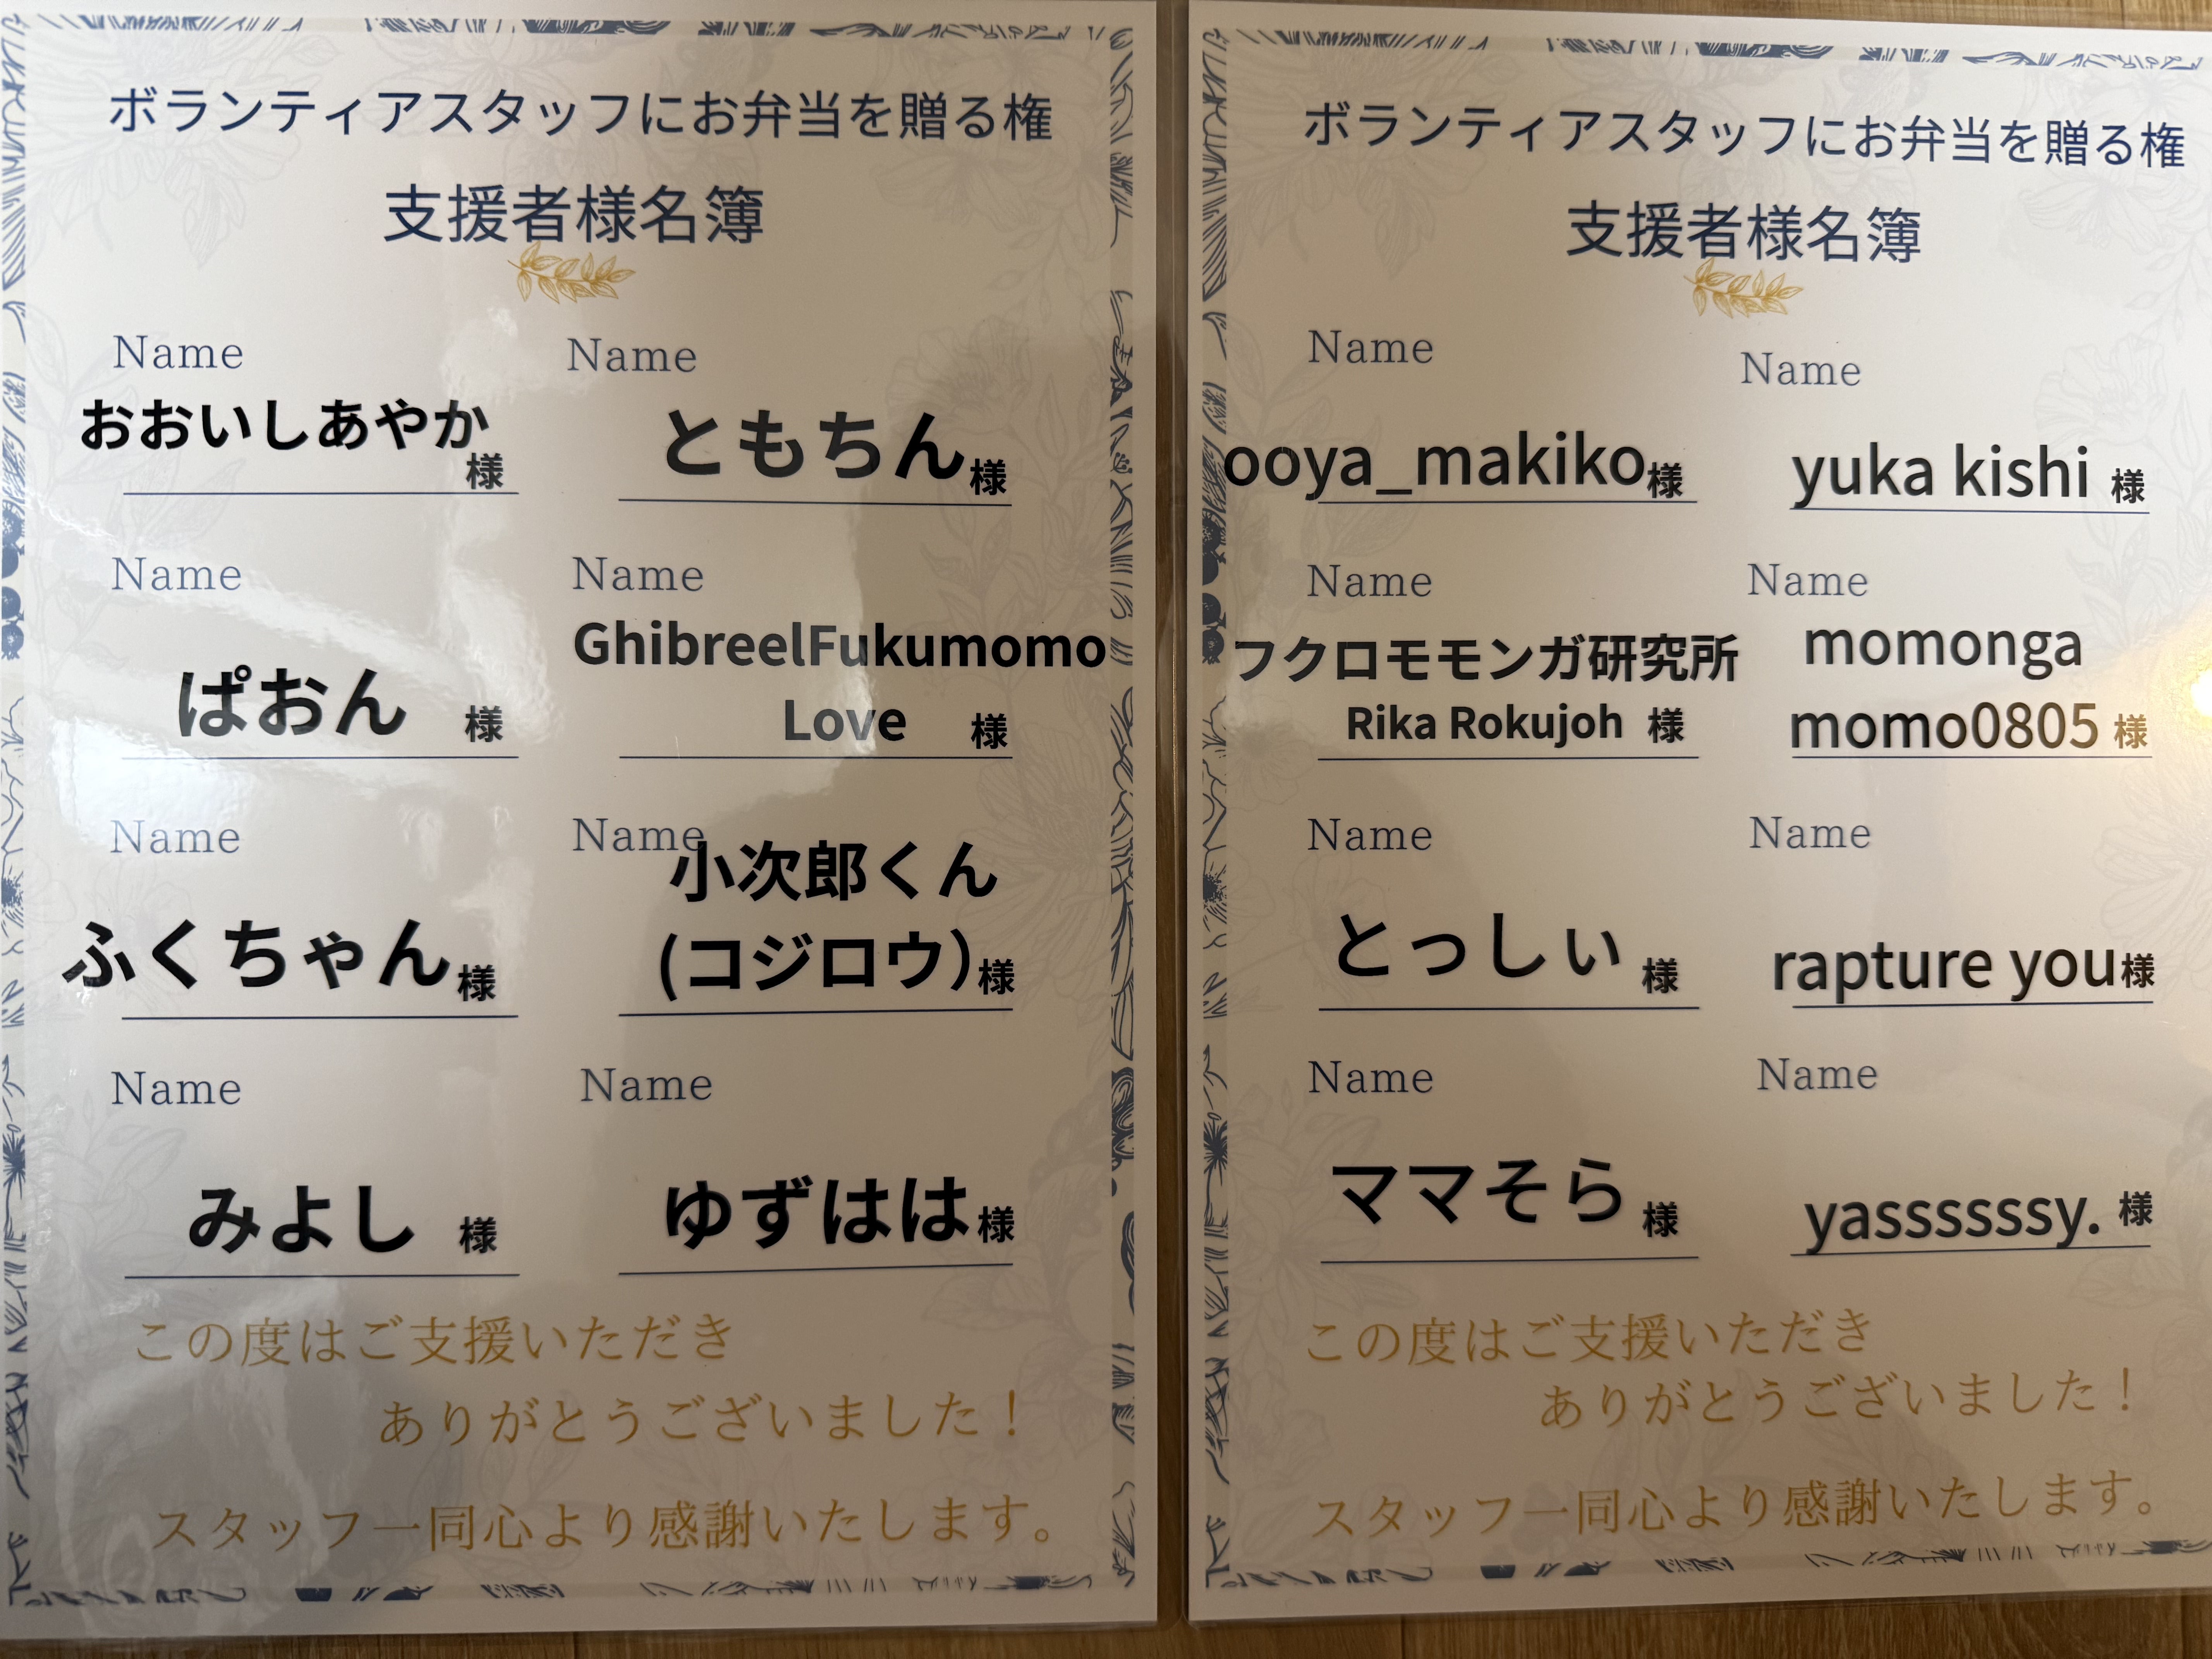 ボランティアスタッフにお弁当を贈る権
支援者様名簿
Name
Name
おおいしあやか
様
ともちん様
Name
Name
ぱおん 様
GhibreelFukumomo
Love 様
Name
Name
ふくちゃん様
小次郎くん
(コジロウ)様
Name
Name
みよし 様
ゆずはは様
この度はご支援いただき
ありがとうございました！
スタッフ一同心より感謝いたします。
ボランティアスタッフにお弁当を贈る権
支援者様名簿
Name
Name
ooya_makiko様
yuka kishi 様
Name
Name
フクロモモンガ研究所
Rika Rokujoh 様
momonga
momo0805 様
Name
Name
とっしぃ 様
rapture you様
Name
Name
ママそら 様
yasssssssy. 様
この度はご支援いただき
ありがとうございました！
スタッフ一同心より感謝いたします。